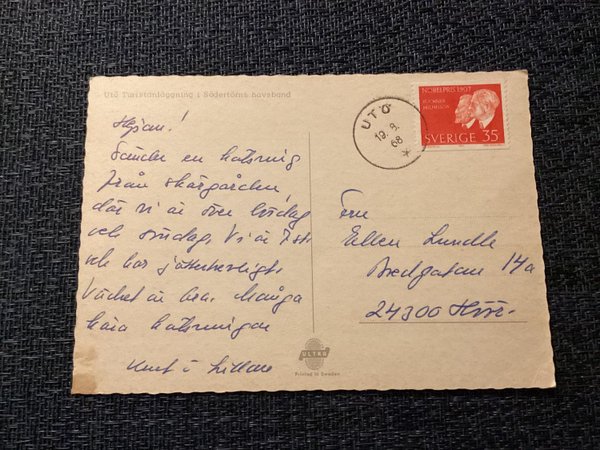 Utö Turistanläggning i Södertörns havsband
Hejsan!
Sänder en hälsning
från skärgården,
där vi är över lördag
och söndag. Vi är 7 st
och har jättetrevligt.
Vädret är bra. Många
kära hälsningar
Knut
UTÖ
19. 8.
68
NOBELPRIS 1907
BUCHNER
MICHELSON
SVERIGE 35
Fru
Ellen Lundle
Bredgatan 14a
24300 Höör
ULTRA
Printed in Sweden